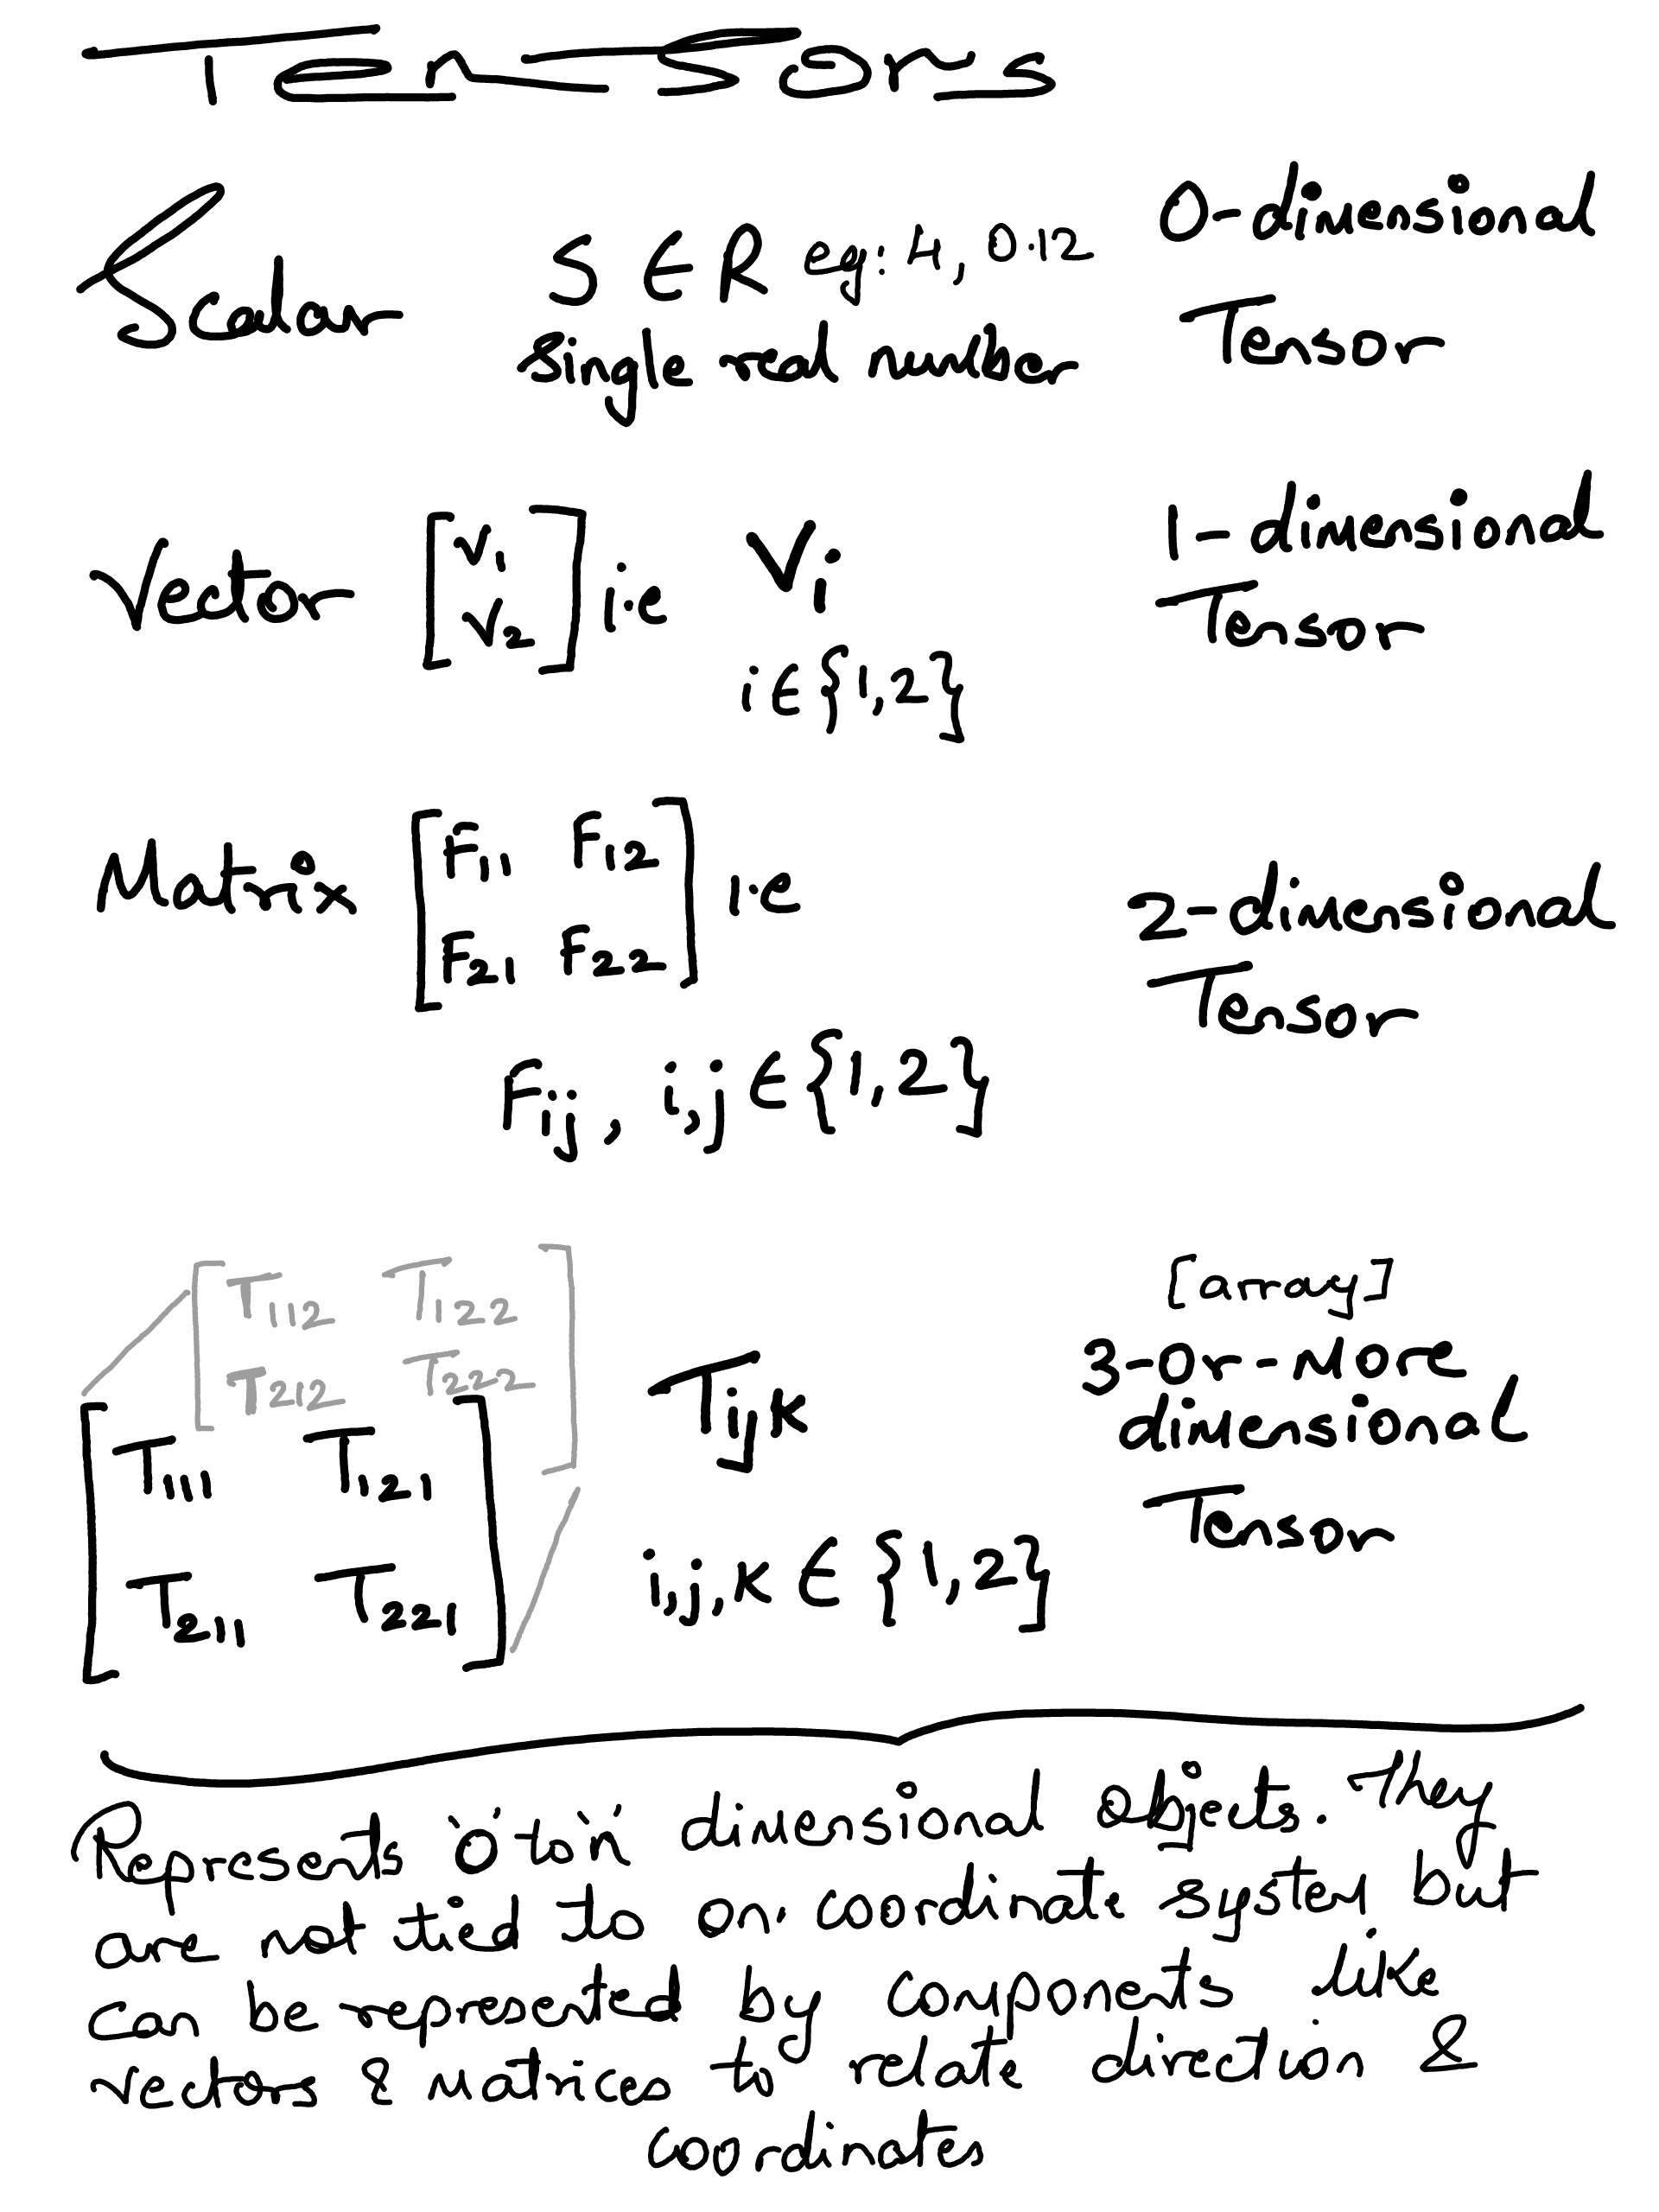 Tensors
Scalar S ∈ R eg: 4, 0.12 0-dimensional
single real number Tensor
Vector [V1 V2] i.e Vi 1-dimensional
i ∈ {1,2} Tensor
Matrix [F11 F12 i.e 2-dimensional
F21 F22] Tensor
Fij, i,j ∈ {1,2}
[T112 T122
T212 T222]
[T111 T121
T211 T221]
Tijk
i,j,k ∈ {1,2}
[array]
3-or-More
dimensional
Tensor
Represents '0' to 'n' dimensional objects. They
are not tied to on coordinate system but
can be represented by components like
vectors & matrices to relate direction &
coordinates